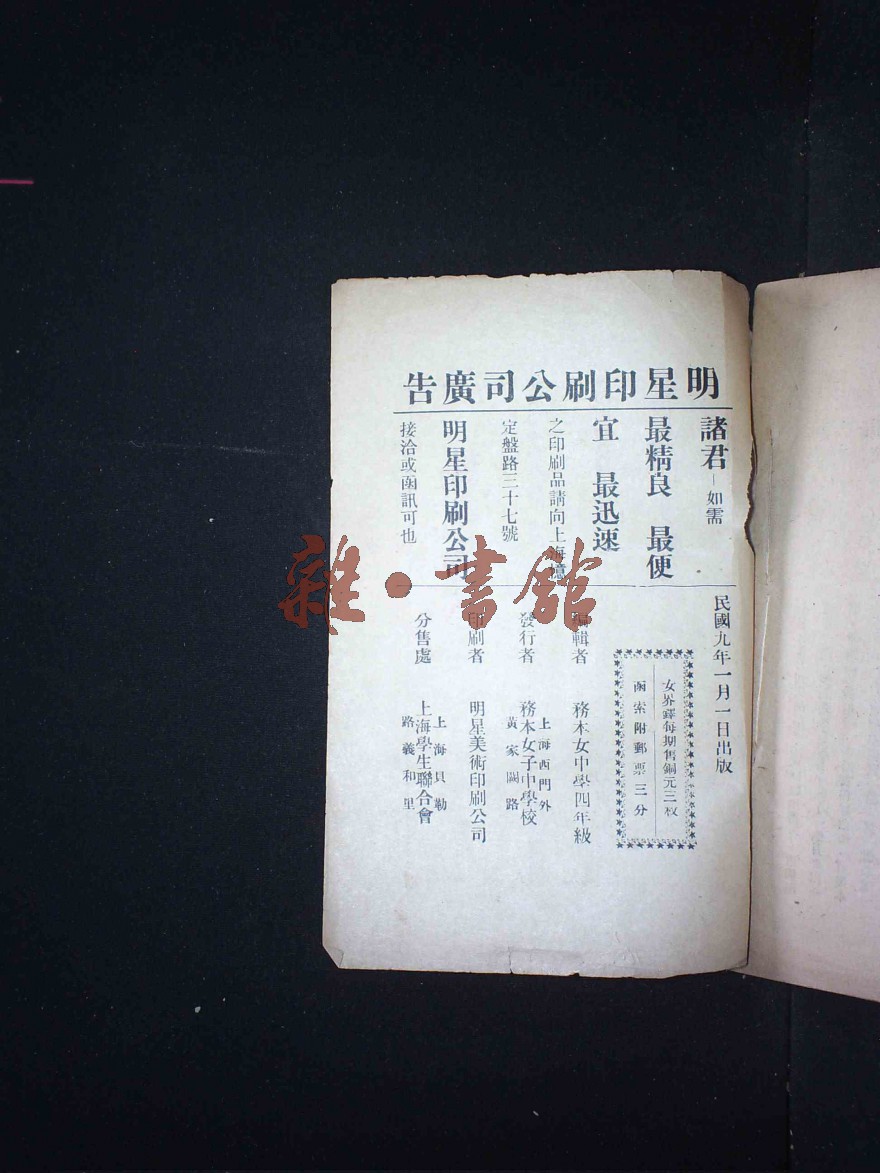 明星印刷公司廣告
諸君—如需
最精良 最便
宜 最迅速
之印刷品請向上海憶
定盤路三十七號
明星印刷公司
接洽或函訊可也
民國九年一月一日出版
女界鐸每期售銅元三枚
函索附郵票三分
編輯者 務本女中學四年級
發行者 上海西門外黃家闕路 務本女子中學校
印刷者 明星美術印刷公司
分售處 上海貝勒路義和里 上海學生聯合會
雜·書館